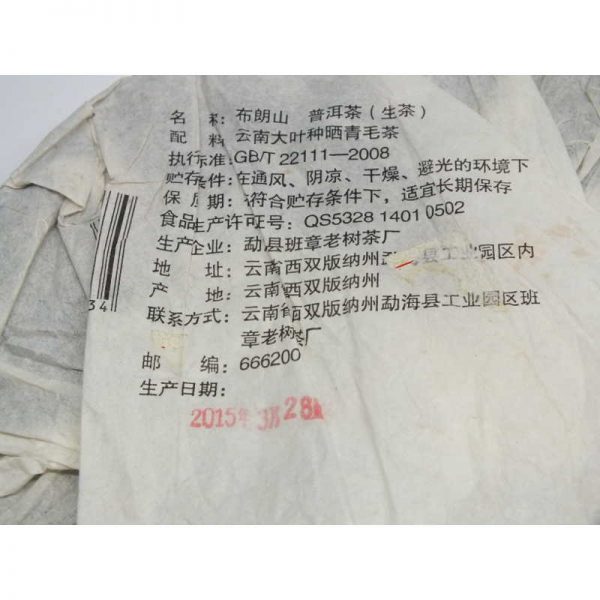 名 称: 布朗山 普洱茶(生茶)
配 料: 云南大叶种晒青毛茶
执行标准:GB/T 22111—2008
贮存条件:在通风、阴凉、干燥、避光的环境下
保 质 期:符合贮存条件下，适宜长期保存
食品生产许可证号: QS5328 1401 0502
生产企业: 勐县班章老树茶厂
地 址: 云南西双版纳州 县工业园区内
产 地: 云南西双版纳州
联系方式: 云南西双版纳州勐海县工业园区班
章老树茶厂
邮 编: 666200
生产日期:
2015年3月28日
34